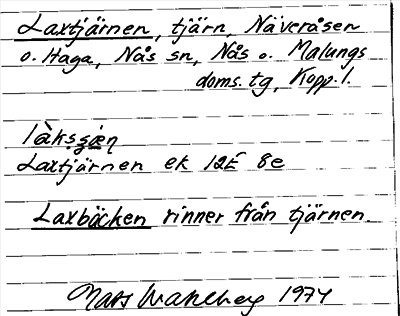 Laxtjärnen, tjärn, Näveråsen
o. Haga, Nås sn, Nås o. Malungs
doms. tg, Kopp. l.
Laxtjärnen ek 12E 8e
Laxbäcken rinner från tjärnen.
Mats Wahlberg 1974